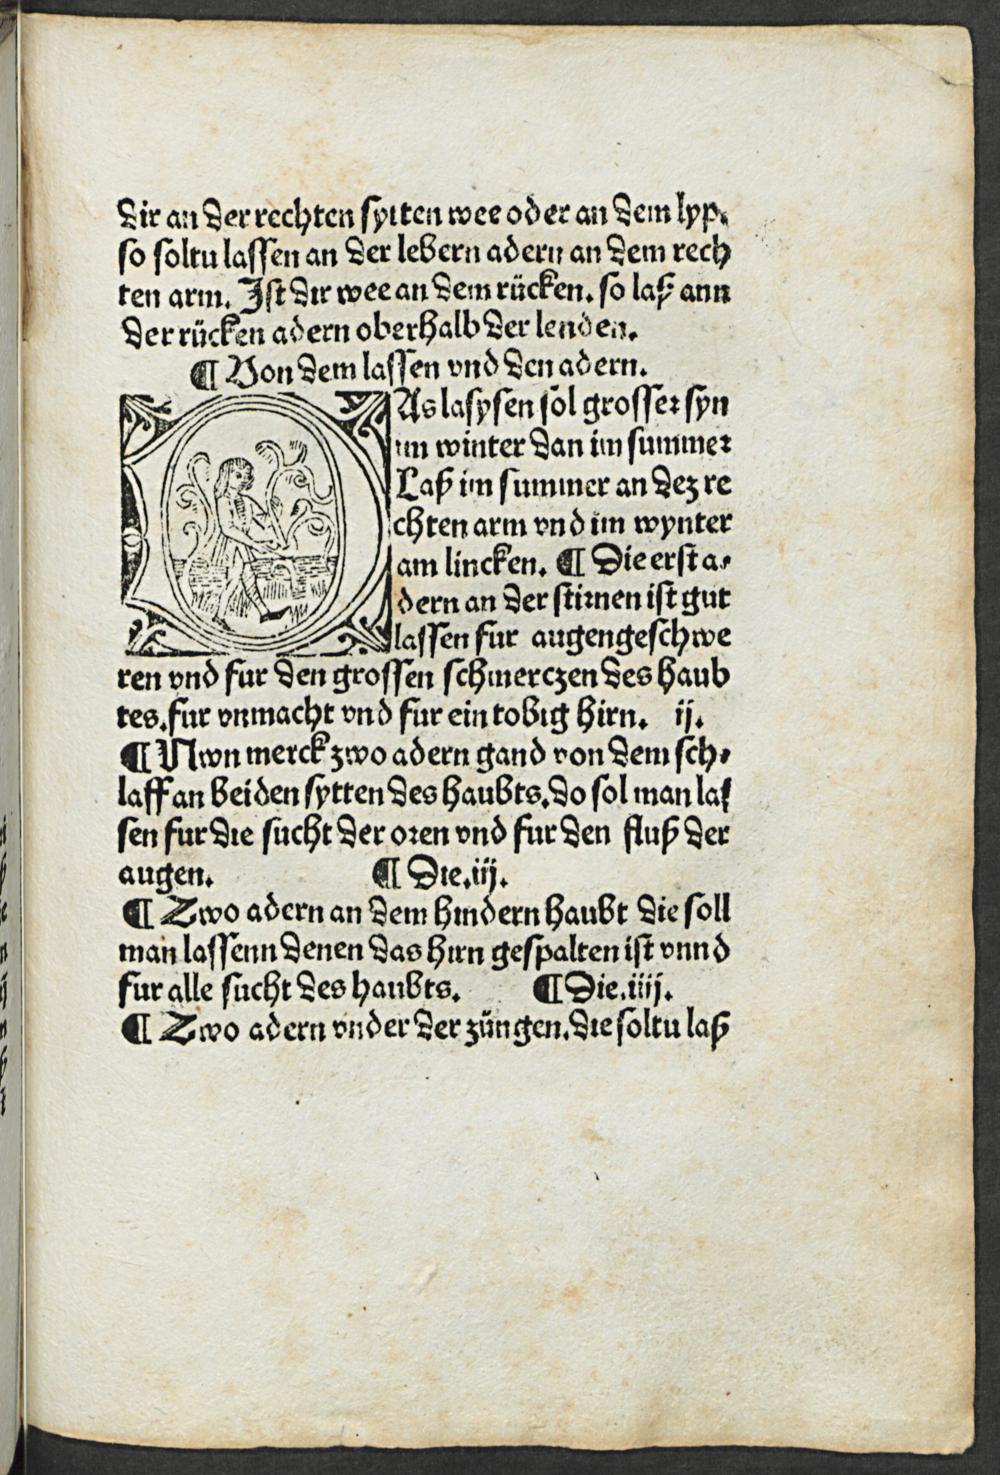 dir an der rechten sytten wee oder an dem lyp.
so soltu lassen an der lebern adern an dem rech
ten arm. Ist dir wee an dem rücken. so laß ann
der rücken adern oberhalb der lenden.
¶ Von dem lassen vnd den adern.
DAs lasysen sol grosser syn
im winter dan im summer
Laß im summer an dez re
chten arm vnd im wynter
am lincken. ¶ Die erst a⸗
dern an der stirnen ist gut
lassen fur augengeschwe
ren vnd fur den grossen schmerczen des haub
tes. fur vnmacht vnd fur ein tobig hirn. ij.
¶ Nwn merck zwo adern gand von dem sch⸗
laff an beiden sytten des haubts. do sol man las
sen fur die sucht der oren vnd fur den fluß der
augen. ¶ Die .iij.
¶ Zwo adern an dem hindern haubt die soll
man lassenn denen das hirn gespalten ist vnnd
fur alle sucht des haubts. ¶ Die .iiij.
¶ Zwo adern vnder der züngen. die soltu laß